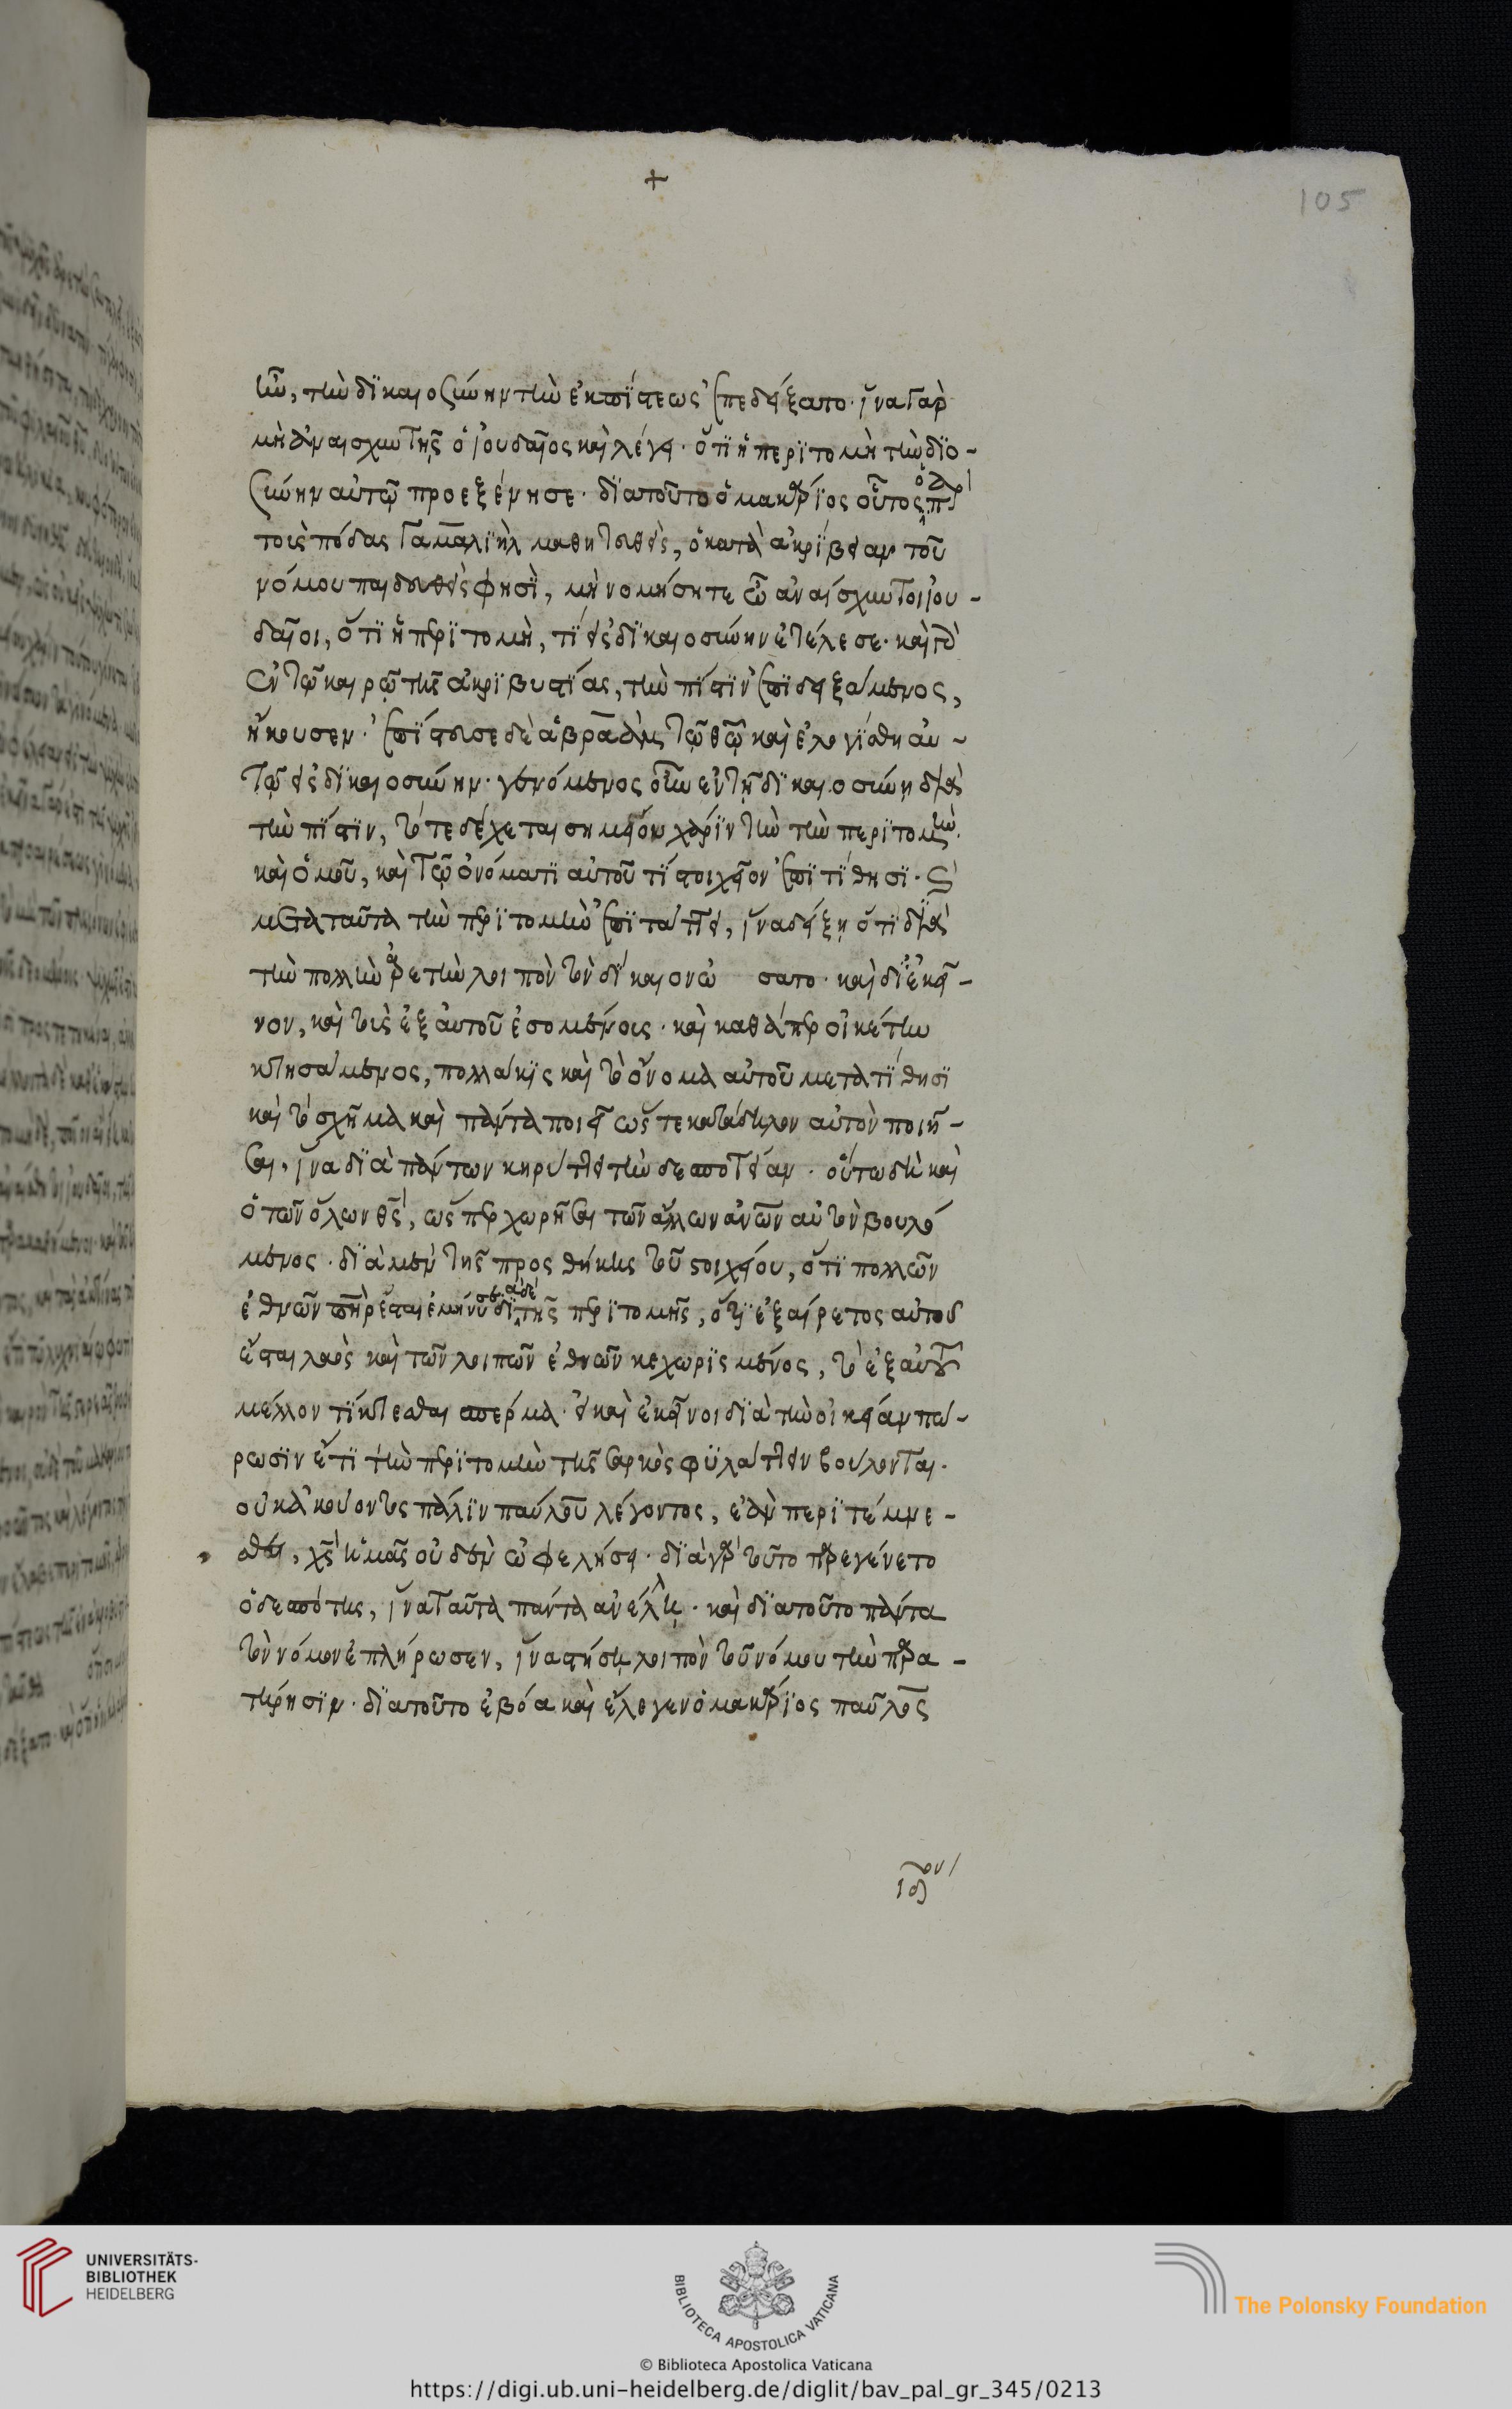 +
105
ὼν, τὴν δικαιοσύνην τὴν ἐκ πίστεως ἐπεδείξατο· ἵνα γὰρ
μὴ ἀναισχυντῆς ὁ ἰουδαῖος καὶ λέγῃ· ὅτι ἡ περιτομὴ τὴν διο-
σύνην αὐτῷ προεξένησε· διατοῦτο ὁ μακάριος οὗτος ὁ παρὰ
τοὺς πόδας Γαμαλιὴλ μαθητευθεὶς, ὁ κατὰ ἀκρίβειαν τοῦ
νόμου παιδευθεὶς φησὶ, μὴ νομήσητε ὦ ἀναίσχυντοι ἰου-
δαῖοι, ὅτι ἡ περιτομὴ, τί εἰς δικαιοσύνην ἐτέλεσε· καὶ γὰρ
ἐν τῷ καιρῷ τῆς ἀκροβυστίας, τὴν πίστιν ἐπιδειξάμενος,
ἤκουσεν· ἐπίστευσε δὲ ἁβραὰμ τῷ θῷ καὶ ἐλογίσθη αὐ-
τῷ εἰς δικαιοσύνην· γενόμενος οὖν ἐν τῇ δικαιοσύνῃ διὰ
τὴν πίστιν, τότε δέχεται σημεῖον χάριν τὴν τὴν περιτομὴν.
καὶ ὁμοῦ, καὶ τῷ ὀνόματι αὐτοῦ τί στοιχεῖον ἐπιτίθησι· καὶ
μετὰ ταῦτα τὴν περιτομὴν ἐπιτάττει, ἵνα δείξῃ ὅτι διὰ
τὴν πολλὴν ἀρετὴν λοιπὸν τὸν δίκαιον ὠ σατο· καὶ δι' ἐκεῖ-
νον, καὶ τοὺς ἐξ αὐτοῦ ἐσομένους· καὶ καθάπερ οἰκέτην
κτησάμενος, πολλάκις καὶ τὸ ὄνομα αὐτοῦ μετατίθησι
καὶ τὸ σχῆμα καὶ πάντα ποιεῖ ὥστε κατάδηλον αὐτὸν ποιῆ-
σαι· ἵνα διὰ πάντων κηρύττει τὴν δεσποτείαν· οὕτω δὴ καὶ
ὁ τῶν ὅλων θς, ὥσπερ χωρῆσαι τῶν ἄλλων ἀνῶν αὐτὸν βουλό
μενος· διὰ μὲν τῆς προσθήκης τοῦ στοιχείου, ὅτι πολλῶν
ἐθνῶν πὴρ ἔσται ἐμήνυσε, διὰ δὲ τῆς περιτομῆς, ὅτι ἐξαίρετος αὐτοῦ
ἔσται λαὸς καὶ τῶν λοιπῶν ἐθνῶν κεχωρισμένος, τὸ ἐξ αὐτοῦ
μέλλον τίκτεσθαι σπέρμα· εἰ καὶ ἐκεῖνοι διὰ τὴν οἰκείαν πώ-
ρωσιν ἔτι τὴν περιτομὴν τῆς σαρκὸς φυλάττειν βούλονται·
οὐκ ἀκούοντες πάλιν παύλου λέγοντος, ἐὰν περιτέμνε-
σθαι, χς ὑμᾶς οὐδὲν ὠφελήσει· διὰ γὰρ τοῦτο παρεγένετο
ὁ δεσπότης, ἵνα ταῦτα πάντα ἀνέλῃ· καὶ διατοῦτο πάντα
τὸν νόμον ἐπλήρωσεν, ἵνα στήσῃ λοιπὸν τοῦ νόμου τὴν παρα-
τήρησιν· διατοῦτο ἐβόα καὶ ἔλεγεν ὁ μακάριος παῦλος
UNIVERSITÄTS-
BIBLIOTHEK
HEIDELBERG
BIBLIOTECA APOSTOLICA VATICANA
The Polonsky Foundation
© Biblioteca Apostolica Vaticana
https://digi.ub.uni-heidelberg.de/diglit/bav_pal_gr_345/0213